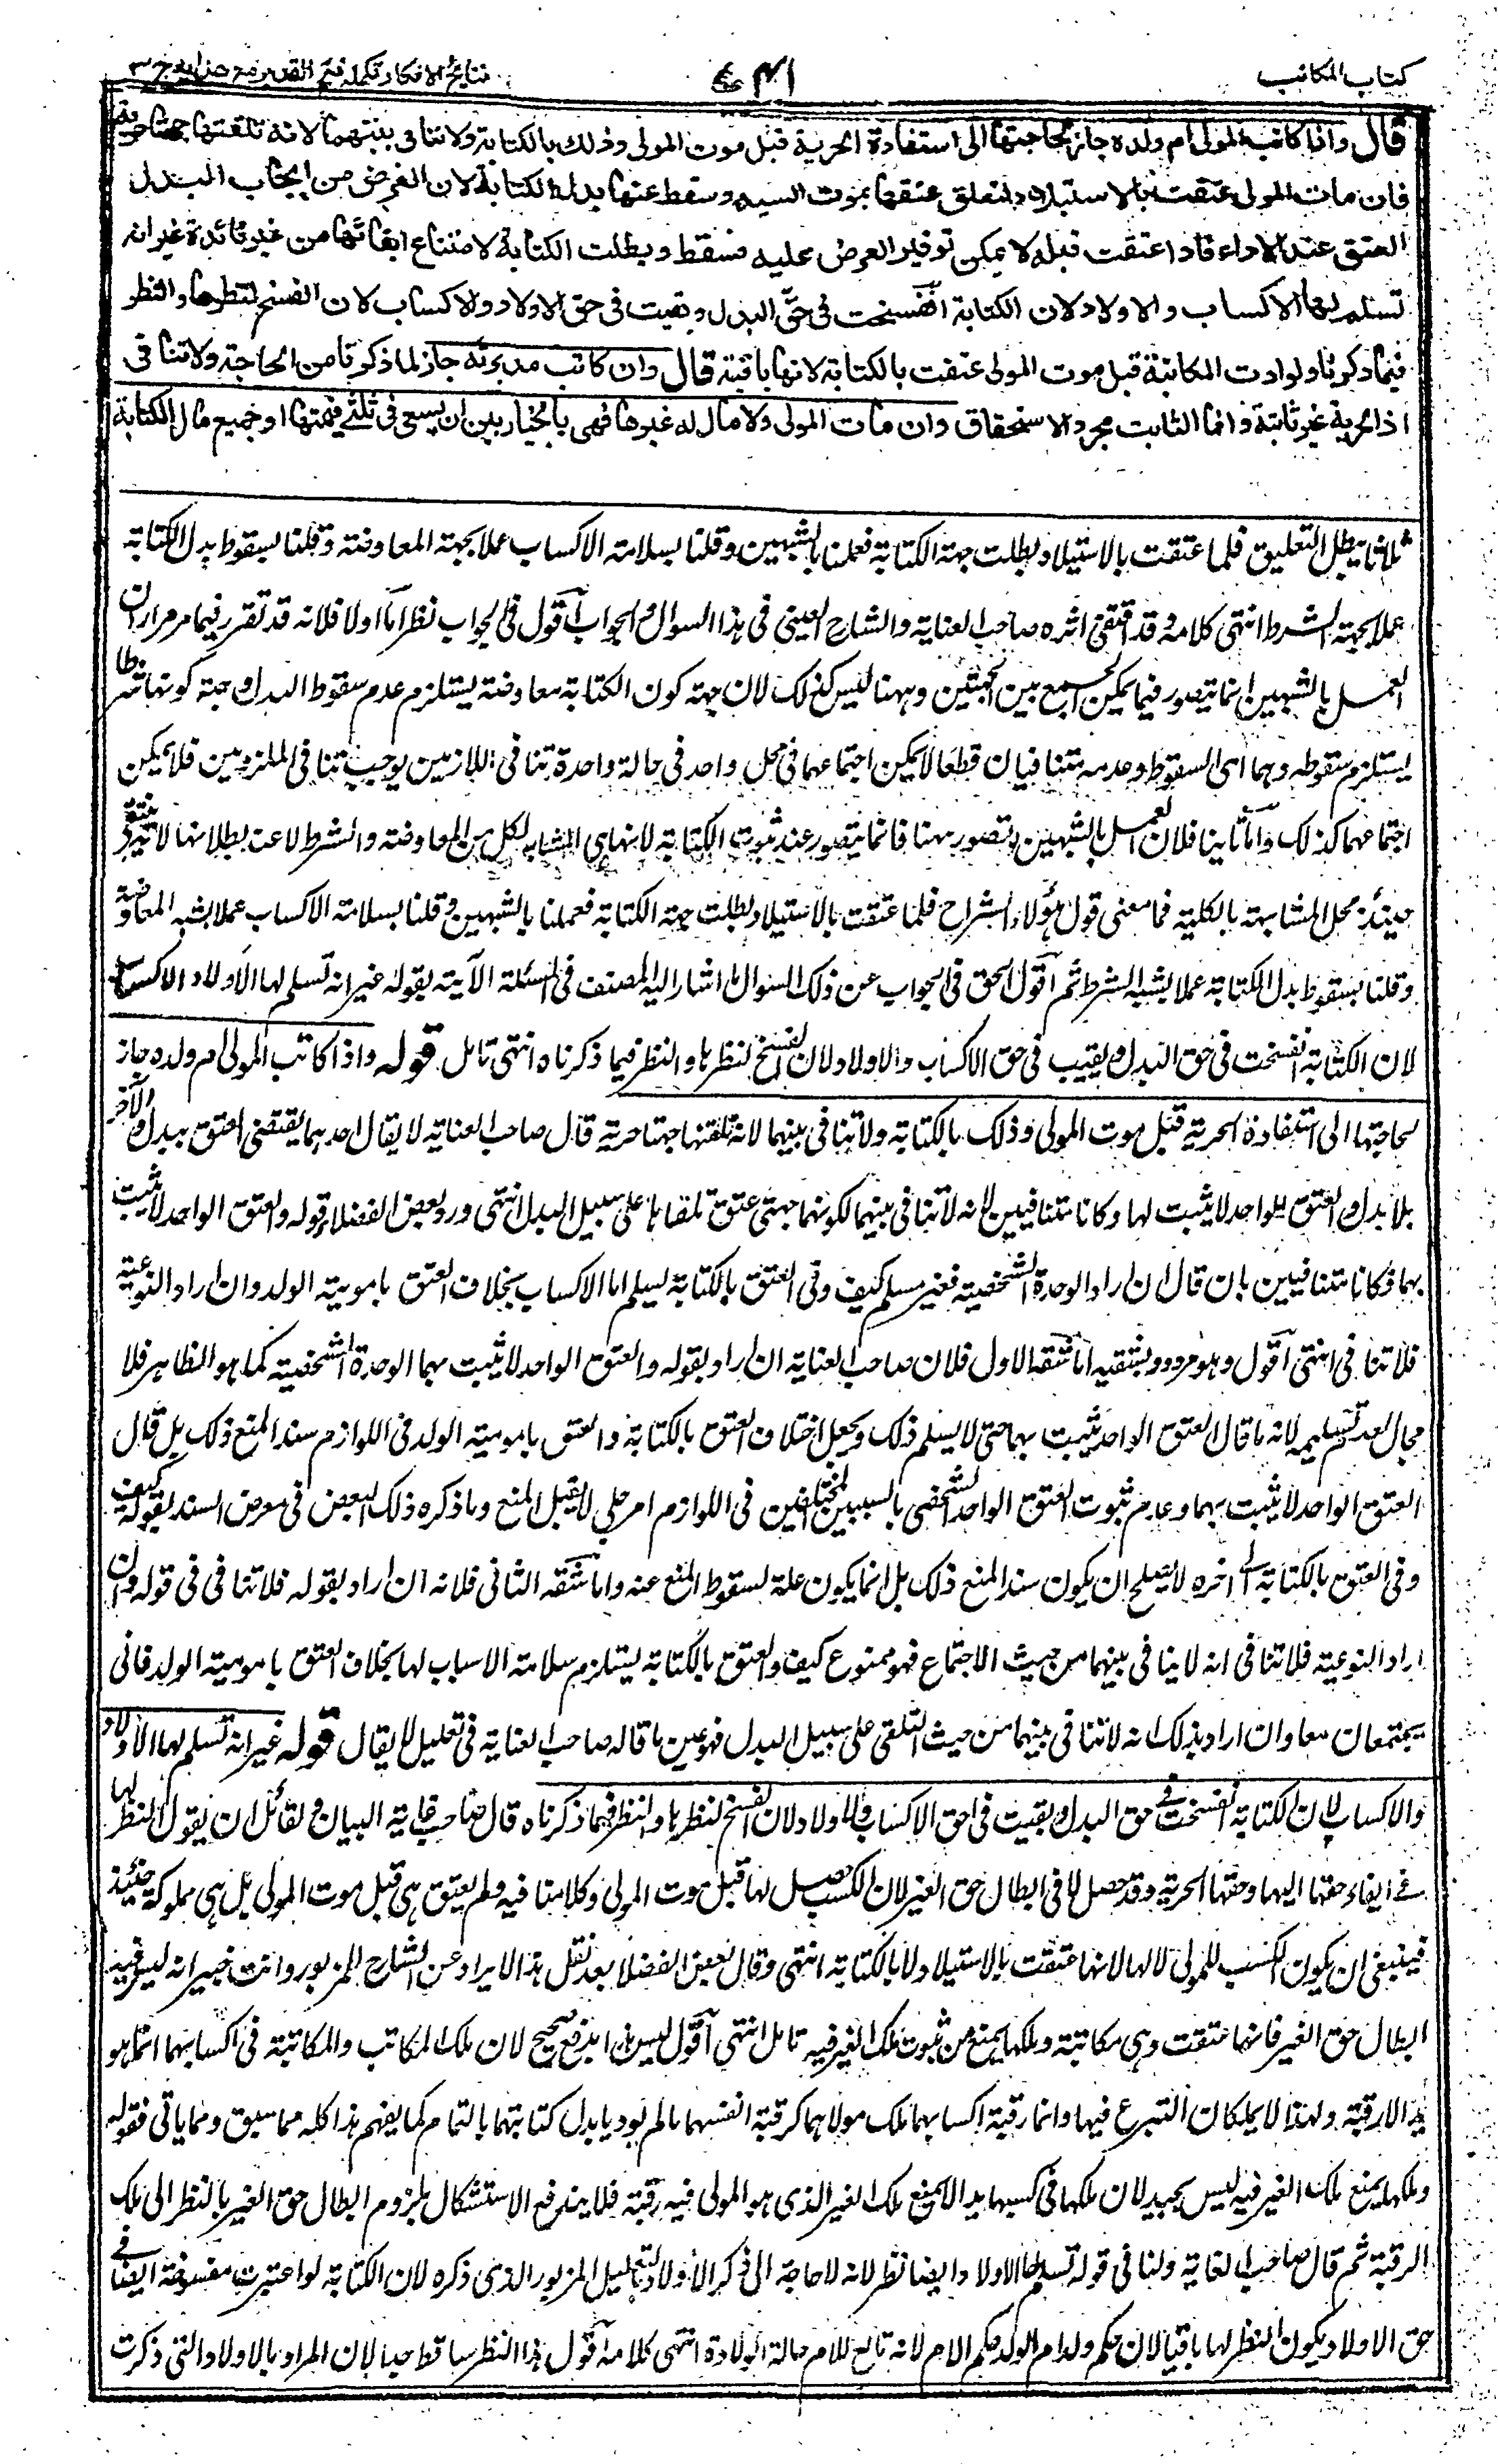 كتاب المكاتب
٤١
نتائج الافكار تكمله فتح القدير مع هدايه ج ٣
قال واذا كاتب المولى ام ولده جاز لحاجتها الى استفادة الحرية قبل موت المولى وذلك بالكتابة ولا تنافى بينهما لانه تلقتها جهتا حرية
فان مات المولى عتقت بالاستيلاد لتعلق عتقها بموت السيد وسقط عنها بدل الكتابة لان الغرض من ايجاب البدل
العتق عند الاداء فاذا عتقت قبله لا يمكن توفير الغرض عليه فسقط وبطلت الكتابة لامتناع ابقائها من غير فائدة غير انه
تسلم لها الاكساب والاولاد لان الكتابة انفسخت فى حق البدل وبقيت فى حق الاولاد والاكساب لان الفسخ لنظرها والنظر
فيما ذكرنا ولو ادت المكاتبة قبل موت المولى عتقت بالكتابة لانها باقية قال وان كاتب مدبرته جاز لما ذكرنا من الحاجة ولا تنافى
اذ الحرية غير ثابتة وانما الثابت مجرد الاستحقاق وان مات المولى ولا مال له غيرها فهى بالخيار بين ان يسعى فى ثلثى قيمتها او جميع مال الكتابة
ثلاثا يبطل التعليق فلما عتقت بالاستيلاد بطلت جهة الكتابة فعملنا بالشبهين وقلنا بسلامة الاكساب عملا بجهة المعاوضة وقلنا بسقوط بدل الكتابة
عملا بجهة الشرط انتهى كلامه وقد اقتفى اثره صاحب العناية والشارح العينى فى هذا السوال والجواب اقول فى الجواب نظر اما اولا فلانه قد تقرر فيما مر مرارا ان
العمل بالشبهين انما يتصور فيما يمكن الجمع بين الجهتين وههنا ليس كذلك لان جهة كون الكتابة معاوضة يستلزم عدم سقوط البدل وجهة كونها شرطا
يستلزم سقوطه وهما اى السقوط وعدمه متنافيان قطعا لا يمكن اجتماعهما فى محل واحد فى حالة واحدة تنافى اللازمين يوجب تنافى الملزومين فلا يمكن
اجتماعهما كذلك واما ثانيا فلان العمل بالشبهين لو تصور ههنا فانما يتصور عند ثبوت الكتابة لانها هى المشابه لكل من المعاوضة والشرط لا عند بطلانها
حينئذ محل المشابهة بالكلية فما معنى قول هؤلاء الشراح فلما عتقت بالاستيلاد بطلت جهة الكتابة فعملنا بالشبهين وقلنا بسلامة الاكساب عملا بشبه المعاوضة
وقلنا بسقوط بدل الكتابة عملا بشبه الشرط ثم اقول الحق فى الجواب عن ذلك السوال ما اشار اليه المصنف فى المسئلة الآتية بقوله غير انه تسلم لها الاولاد والاكساب
لان الكتابة انفسخت فى حق البدل وبقيت فى حق الاكساب والاولاد لان الفسخ لنظرها والنظر فيما ذكرناه انتهى تامل قوله واذا كاتب المولى ام ولده جاز
لحاجتها الى استفادة الحرية قبل موت المولى وذلك بالكتابة ولا تنافى بينهما لانه تلقتها جهتا حرية قال صاحب العناية لا يقال احدهما يقتضى العتق ببدل والآخر
بلا بدل والعتق الواحد لا يثبت لها وكانا متنافيين لانه لا تنافى بينهما لكونهما جهتى عتق تلقاها على سبيل البدل انتهى ورد بعض الفضلاء قوله والعتق الواحد لا يثبت
بهما فكانا متنافيين بان قال ان اراد الوحدة الشخصية فغير مسلم كيف وفى العتق بالكتابة يسلم لها الاكساب بخلاف العتق بامومية الولد وان اراد النوعية
فلا تنافى انتهى اقول وهو مردود بشقيه اما شقه الاول فلان صاحب العناية ان اراد بقوله والعتق الواحد لا يثبت بهما الوحدة الشخصية كما هو الظاهر فلا
مجال لعدم تسليمه لانه ما قال العتق الواحد يثبت بهما حتى لا يسلم ذلك ويجعل اختلاف العتق بالكتابة والعتق بامومية الولد فى اللوازم سندا لمنع ذلك بل قال
العتق الواحد لا يثبت بهما وعدم ثبوت العتق الواحد الشخصى بالسببين المختلفين فى اللوازم امر جلى لا يقبل المنع وما ذكره ذلك البعض فى معرض السند بقوله كيف
وفى العتق بالكتابة الى اخره لا يصلح ان يكون سندا لمنع ذلك بل انما يكون علة لسقوط المنع عنه واما شقه الثانى فلانه ان اراد بقوله فلا تنافى فى قوله وان
اراد النوعية فلا تنافى انه لا ينافى بينهما من حيث الاجتماع فهو ممنوع كيف والعتق بالكتابة يستلزم سلامة الاسباب لها بخلاف العتق بامومية الولد فانى
يجتمعان معا وان اراد بذلك انه لا تنافى بينهما من حيث التلقى على سبيل البدل فهو عين ما قاله صاحب العناية فى تعليل لا يقال قوله غير انه تسلم لها الاولاد
والاكساب لان الكتابة انفسخت فى حق البدل وبقيت فى حق الاكساب والاولاد لان الفسخ لنظرها والنظر فيما ذكرناه قال صاحب غاية البيان ولقائل ان يقول النظر لها
فى ايفاء حقها اليها وحقها الحرية وقد حصل لا فى ابطال حق الغير لان الكسب حصل لها قبل موت المولى وكلامنا فيه ولم يعتق هى قبل موت المولى بل هى مملوكة حينئذ
فينبغى ان يكون الكسب للمولى لا لها لانها عتقت بالاستيلاد لا بالكتابة انتهى وقال بعض الفضلاء بعد نقل هذا الايراد عن الشارح المزبور وانت خبير انه ليس فيه
ابطال حق الغير فانها عتقت وهى مكاتبة وملكها يمنع من ثبوت ملك الغير فيه تامل انتهى اقول ليس هذا بدفع صحيح لان ملك المكاتب والمكاتبة فى اكسابهما انما هو
يدا لا رقبة ولهذا لا يملكان التبرع فيها وانما رقبة اكسابهما ملك مولاهما كرقبة انفسهما ما لم يوديا بدل كتابتهما بالتمام كما يفهم هذا كله مما سبق ومما ياتى فقوله
وملكها يمنع ملك الغير فيه ليس بجيد لان ملكها فى كسبها يدا لا يمنع ملك الغير الذى هو المولى فيه رقبة فلا يندفع الاستشكال بلزوم ابطال حق الغير بالنظر الى ملك
الرقبة ثم قال صاحب الغاية ولنا فى قوله تسلم لها الاولاد ايضا نظر لانه لا حاجة الى ذكر الاولاد بالتعليل المزبور الذى ذكره لان الكتابة لو اعتبرت مفسوخة ايضا فى
حق الاولاد يكون النظر لها باقيا لان حكم ولد ام الولد حكم الام لانه تابع للام حالة الولادة انتهى كلامه اقول هذا النظر ساقط جدا لان المراد بالاولاد التى ذكرت